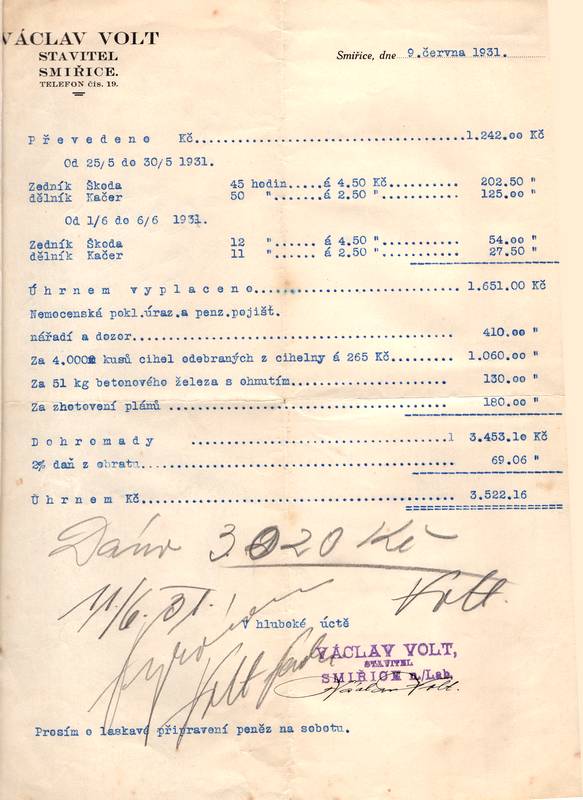 VÁCLAV VOLT
STAVITEL
SMIŘICE.
TELEFON ČÍS. 19.
Smiřice, dne 9.června 1931.
Převedeno Kč........................................1.242.00 Kč
Od 25/5 do 30/5 1931.
Zedník Škoda 45 hodin.....á 4.50 Kč.......... 202.50 "
dělník Kačer 50 "...... á 2.50 "........... 125.00 "
Od 1/6 do 6/6 1931.
Zedník Škoda 12 "...... á 4.50 "........... 54.00 "
dělník Kačer 11 "...... á 2.50 "........... 27.50 "
Úhrnem vyplaceno............................. 1.651.00 Kč
Nemocenská pokl.úraz.a penz.pojišt.
nářadí a dozor............................................... 410.00 "
Za 4.000 kusů cihel odebraných z cihelny á 265 Kč......... 1.060.00 "
Za 51 kg betonového železa s ohnutím....................... 130.00 "
Za zhotovení plánů ......................................... 180.00 "
Dohromady ......................................1 3.453.10 Kč
2% daň z obratu............................................. 69.06 "
Úhrnem Kč............................................. 3.522.16
Dáno 3.020 Kč
11/6. 31. Volt.
V hluboké úctě
Volt
VÁCLAV VOLT,
STAVITEL
SMIŘICE n./Lab.
Václav Volt.
Prosím o laskavé připravení peněz na sobotu.